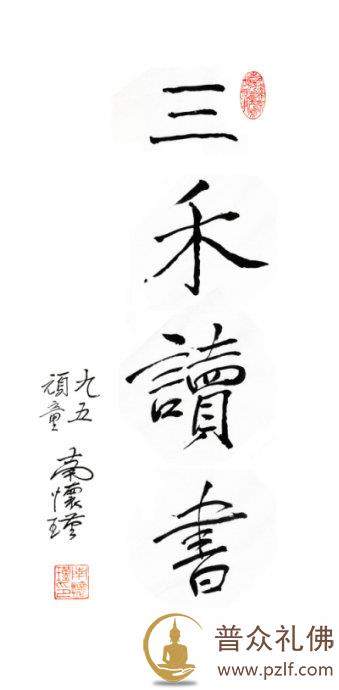 三禾讀書
九五
頑童
南懷瑾
普众礼佛
www.pzlf.com